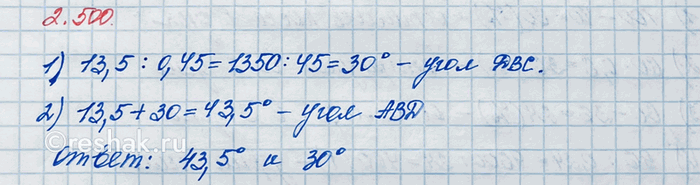 2.500
1) 13,5 : 0,45 = 1350 : 45 = 30° – угол DBC.
2) 13,5 + 30 = 43,5° – угол ABD
Ответ: 43,5° и 30°
reshak.ru